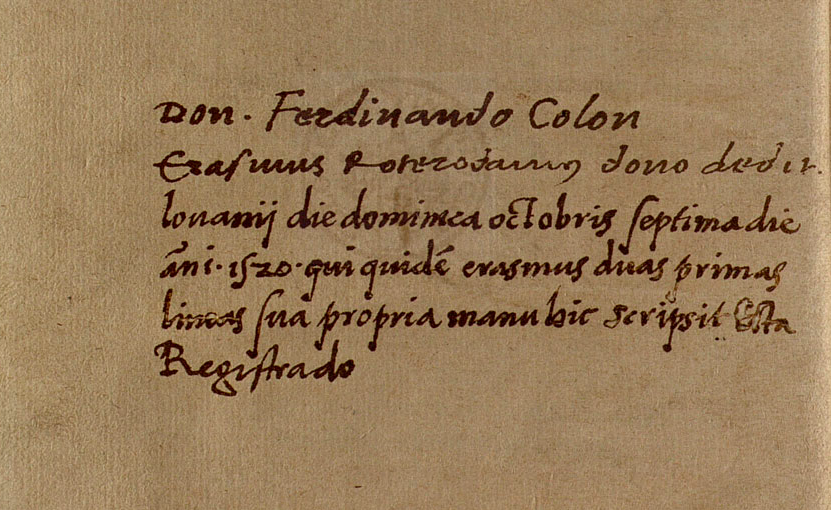 Don. Ferdinando Colon
Erasmus Roterodamus dono dedit.
lovanij die dominica octobris septima die
āni. 1520. qui quidē erasmus duas primas
lineas sua propria manu hic scripsit Esta
Registrado